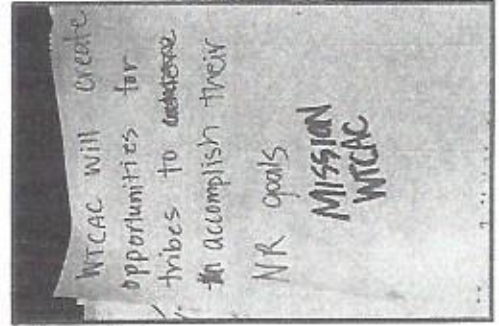 WTCAC will create
opportunities for
tribes to
accomplish their
NR goals
MISSION
WTCAC